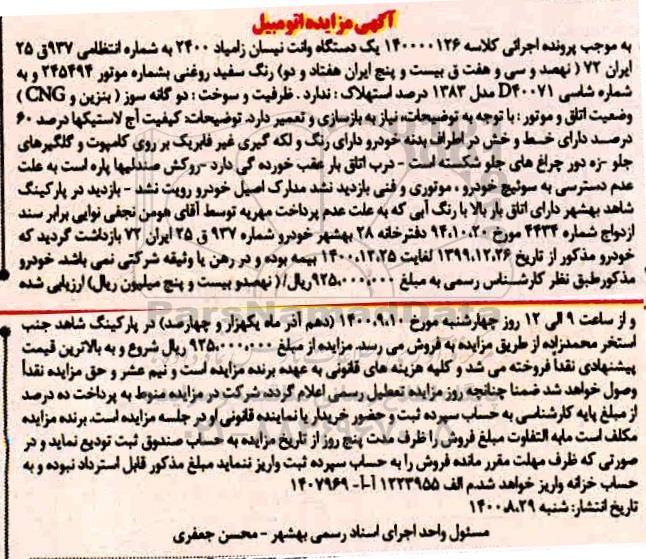 آگهی مزایده اتومبیل
به موجب پرونده اجرائی کلاسه ۱۴۰۰۰۰۱۲۶ یک دستگاه وانت نیسان زامیاد ۲۴۰۰ به شماره انتظامی ۹۳۷ق ۲۵
ایران ۷۲ ( نهصد و سی و هفت ق بیست و پنج ایران هفتاد و دو) رنگ سفید روغنی بشماره موتور ۲۴۵۴۹۴ و به
شماره شاسی D۴۰۰۷۱ مدل ۱۳۸۳ درصد استهلاک : ندارد . ظرفیت و سوخت : دو گانه سوز ( بنزین و CNG )
وضعیت اتاق و موتور : با توجه به توضیحات، نیاز به بازسازی و تعمیر دارد. توضیحات: کیفیت آج لاستیکها درصد ۶۰
درصد دارای خط و خش در اطراف بدنه خودرو دارای رنگ و لکه گیری غیر فابریک بر روی کاپوت و گلگیرهای
جلو -زه دور چراغ های جلو شکسته است - درب اتاق بار عقب خورده گی دارد -روکش صندلیها پاره است به علت
عدم دسترسی به سوئیچ خودرو ، موتوری و فنی بازدید نشد مدارک اصیل خودرو رویت نشد - بازدید در پارکینگ
شاهد بهشهر دارای اتاق بار بالا با رنگ آبی که به علت عدم پرداخت مهریه توسط آقای هومن نجفی نوایی برابر سند
ازدواج شماره ۴۴۳۴ مورخ ۹۴،۱۰،۲۰ دفترخانه ۲۸ بهشهر خودرو شماره ۹۳۷ ق ۲۵ ایران ۷۲ بازداشت گردید که
خودرو مذکور از تاریخ ۱۳۹۹،۱۲،۲۶ لغایت ۱۴۰۰،۱۲،۲۵ بیمه بوده و در رهن یا وثیقه شرکتی نمی باشد. خودرو
مذکورطبق نظر کارشناس رسمی به مبلغ ۹۲۵،۰۰۰،۰۰۰ ریال/( نهصدو بیست و پنج میلیون ریال) ارزیابی شده
و از ساعت ۹ الی ۱۲ روز چهارشنبه مورخ ۱۴۰۰،۹،۱۰ (دهم آذر ماه یکهزار و چهارصد) در پارکینگ شاهد جنب
استخر محمدزاده از طریق مزایده به فروش می رسد. مزایده از مبلغ ۹۲۵،۰۰۰،۰۰۰ ریال شروع و به بالاترین قیمت
پیشنهادی نقداً فروخته می شد و کلیه هزینه های قانونی به عهده برنده مزایده است و نیم عشر و حق مزایده نقداً
وصول خواهد شد ضمنا چنانچه روز مزایده تعطیل رسمی اعلام گردد، شرکت در مزایده منوط به پرداخت ده درصد
از مبلغ پایه کارشناسی به حساب سپرده ثبت و حضور خریدار یا نماینده قانونی او در جلسه مزایده است. برنده مزایده
مکلف است مابه التفاوت مبلغ فروش را ظرف مدت پنج روز از تاریخ مزایده به حساب صندوق ثبت تودیع نماید و در
صورتی که ظرف مهلت مقرر مانده فروش را به حساب سپرده ثبت واریز ننماید مبلغ مذکور قابل استرداد نبوده و به
حساب خزانه واریز خواهد شد.م الف ۱۲۲۳۹۵۵ آ-آ- ۱۴۰۷۹۶۹
تاریخ انتشار: شنبه ۱۴۰۰،۸،۲۹
مسئول واحد اجرای اسناد رسمی بهشهر - محسن جعفری